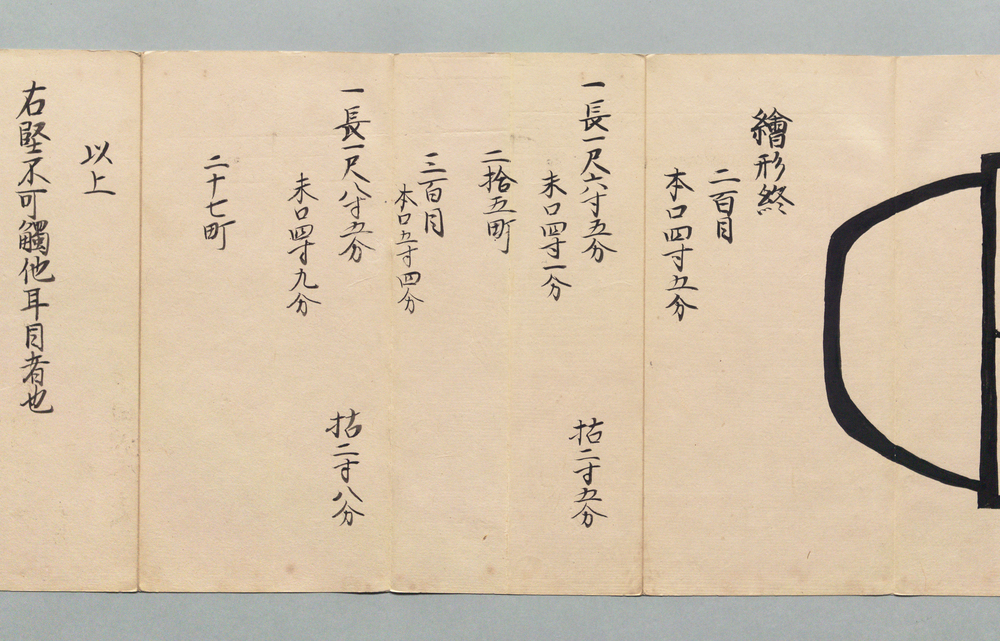 繪形終
二百目
本口四寸五分
一長一尺六寸五分 括二寸五分
末口四寸一分
二拾五町
三百目
本口五寸四分
一長一尺八寸五分 括二寸八分
末口四寸九分
二十七町
以上
右堅不可觸他耳目者也